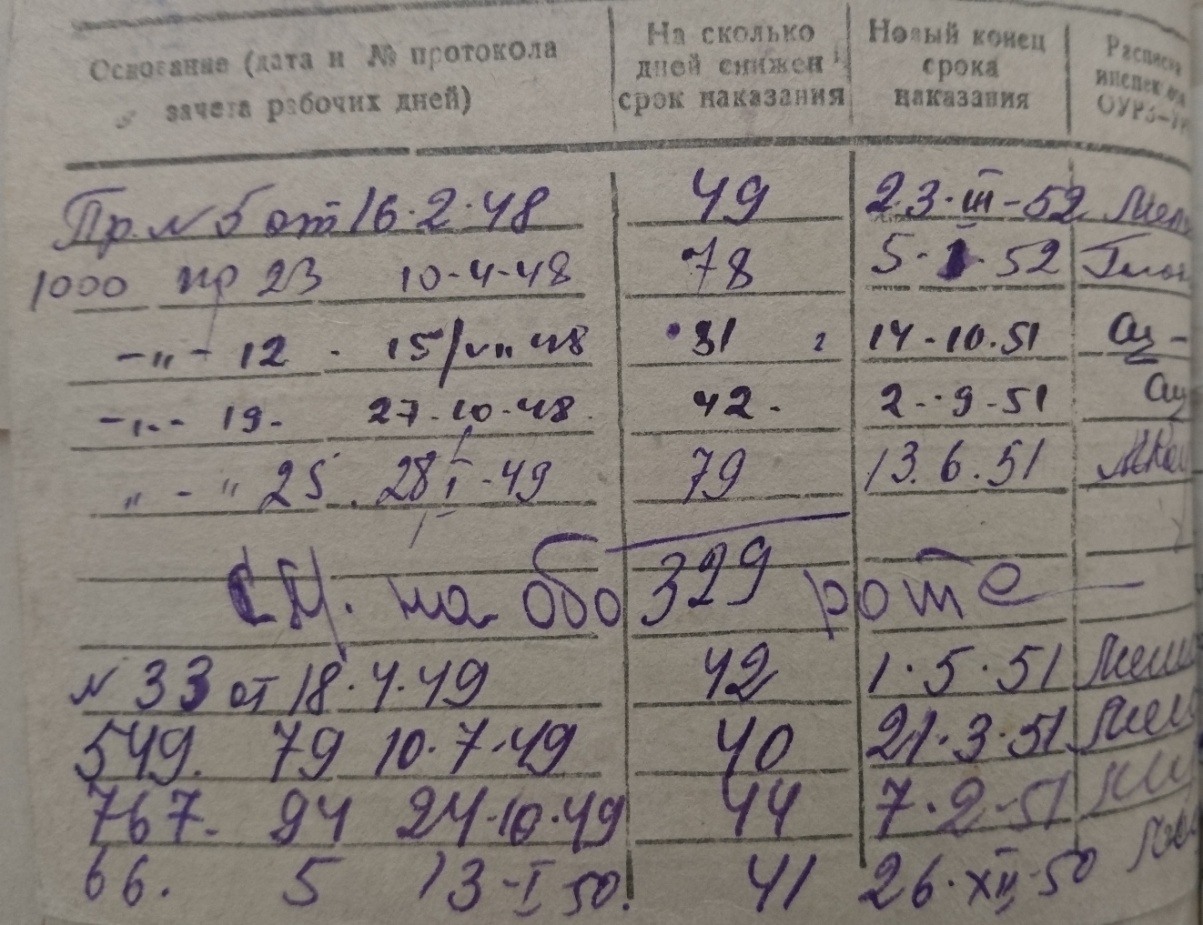 Основание (дата и № протокола зачета рабочих дней)
На сколько дней снижен срок наказания
Новый конец срока наказания
Пр. N 5 от 16·2·48 49 23·III-52
1000 пр 23 10-4-48 78 5·I·52
-"- 12 - 15/VII 48 81 14-10.51
-"- 19. 27-10-48 42. 2-9-51
"-" 25. 28 I-49 79 13.6.51
329
см. на обороте
N 33 от 18·4·49 42 1·5·51
549. 79 10·7·49 40 21·3·51
767. 94 24·10·49 44 7·2·51
66. 5 13-I 50. 41 26·XII·50